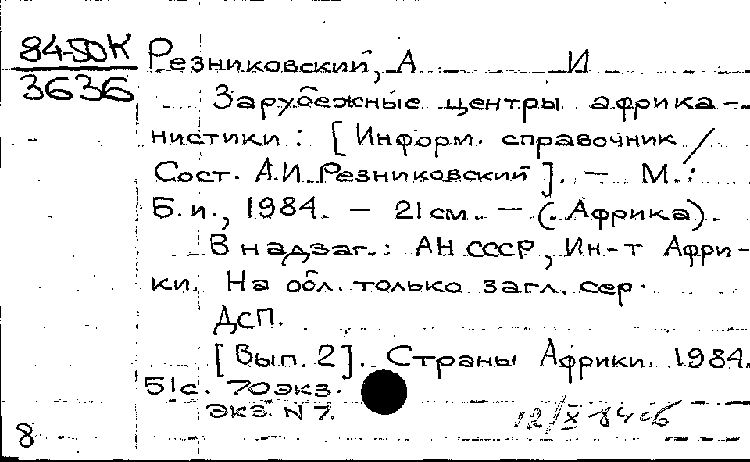 84-50К
3636
Резниковский, А И
Зарубежные центры африка-
нистики : [ Информ. справочник /
Сост. А.И. Резниковский ]. — М. :
Б. и., 1984. — 21 см. — (Африка).
В надзаг.: АН СССР, Ин-т Афри-
ки. На обл. только загл. сер.
ДСП.
[ Вып. 2 ]. Страны Африки. 1984.
51 с. 70 экз.
экз. N 7.
12/X 84
8